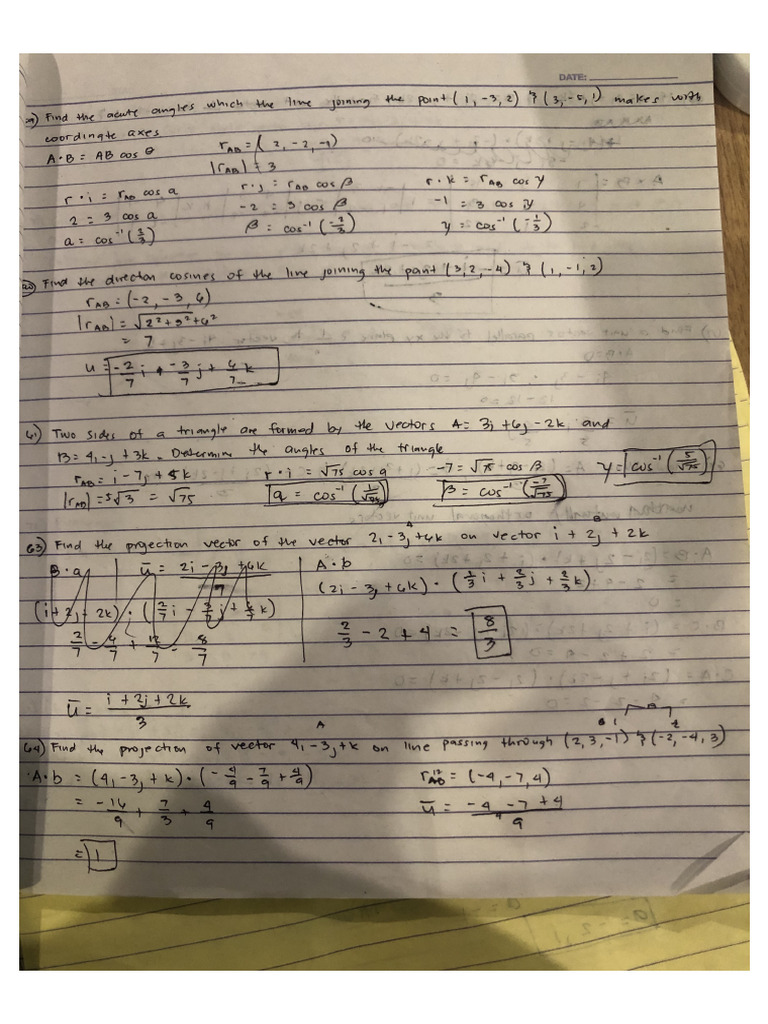 DATE:
59) Find the acute angles which the line joining the point (1, -3, 2) & (3, -5, 1) makes with
coordinate axes
A·B = AB cos θ
r_AB = (2, -2, -1)
|r_AB| = 3
r·i = r_AB cos a
r·j = r_AB cos β
r·k = r_AB cos γ
2 = 3 cos a
-2 = 3 cos β
-1 = 3 cos γ
a = cos⁻¹(2/3)
β = cos⁻¹(-2/3)
γ = cos⁻¹(-1/3)
60) Find the direction cosines of the line joining the point (3, 2, -4) & (1, -1, 2)
r_AB = (-2, -3, 6)
|r_AB| = √2²+3²+6²
= 7
u = -2/7 i + -3/7 j + 6/7 k
61) Two sides of a triangle are formed by the vectors A = 3i + 6j - 2k and
B = 4i - j + 3k. Determine the angles of the triangle
r_AB = i - 7j + 5k
r·i = √75 cos a
-7 = √75 cos β
γ = cos⁻¹(5/√75)
|r_AB| = 5√3 = √75
a = cos⁻¹(1/√75)
β = cos⁻¹(-7/√75)
A
B
63) Find the projection vector of the vector 2i - 3j + 6k on vector i + 2j + 2k
B·a
ū = 2i - 3j + 6k / 7
A·b
(i + 2j + 2k) · (2/7 i - 3/7 j + 6/7 k)
(2i - 3j + 6k) · (1/3 i + 2/3 j + 2/3 k)
2/7 - 6/7 + 12/7 = 8/7
2/3 - 2 + 4 = 8/3
ū = i + 2j + 2k / 3
A
B
1
2
64) Find the projection of vector 4i - 3j + k on line passing through (2, 3, -1) & (-2, -4, 3)
A·b = (4i - 3j + k) · (-4/9 - 7/9 + 4/9)
r_AB = (-4, -7, 4)
= -16/9 + 7/3 + 4/9
ū = -4 - 7 + 4 / 9
= 1